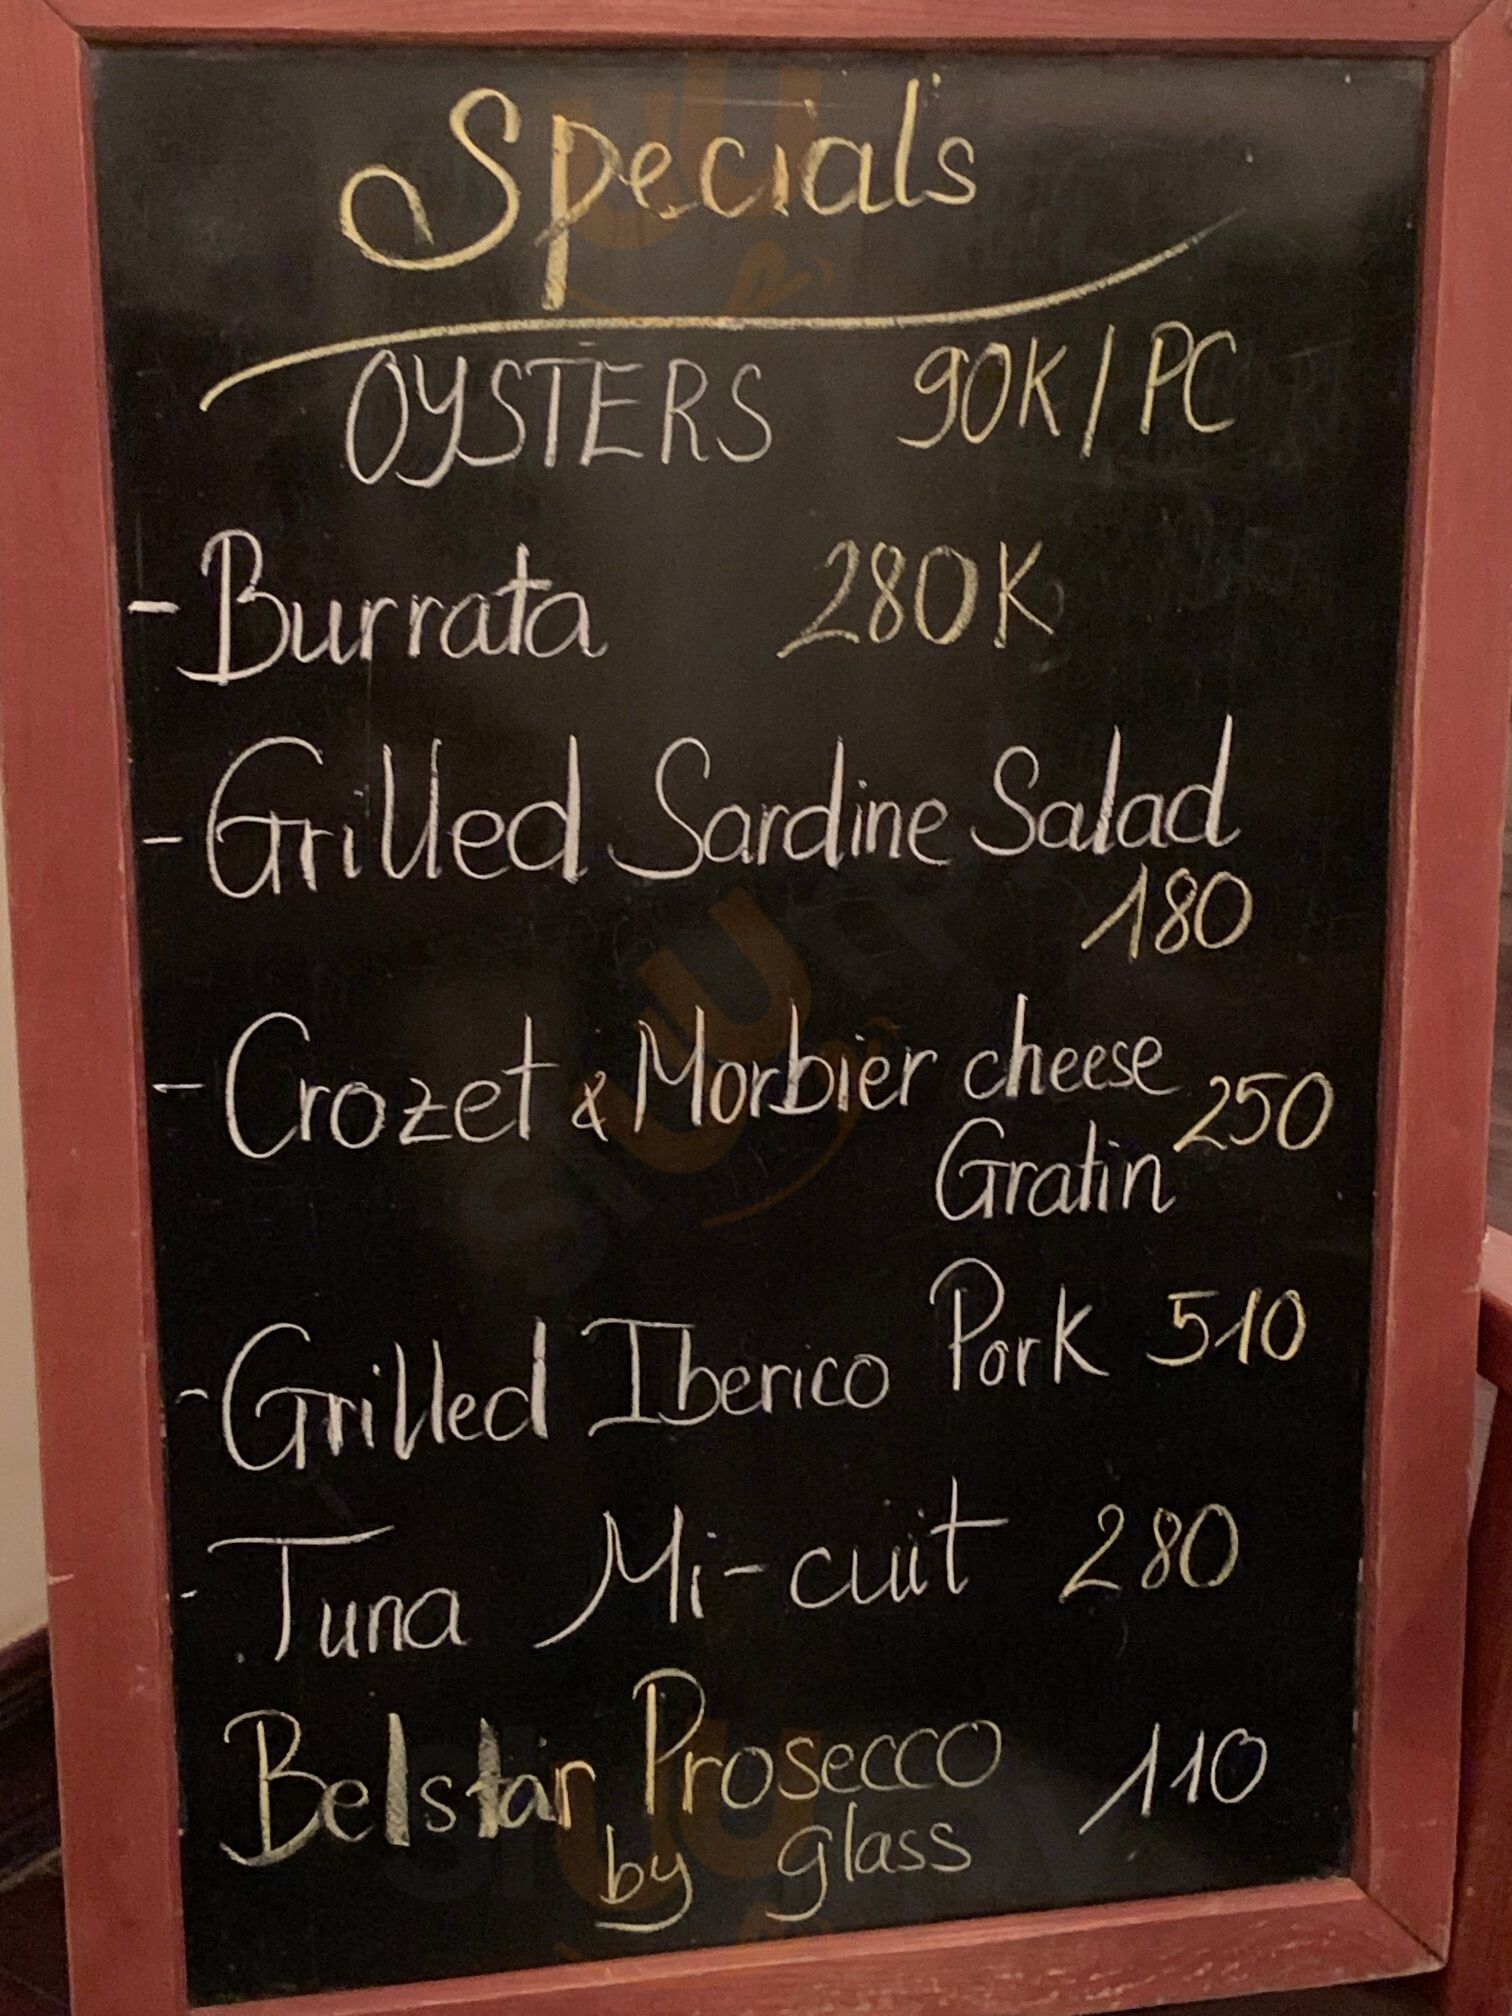 Specials
OYSTERS 90K/PC
- Burrata 280K
- Grilled Sardine Salad
180
- Crozet & Morbier cheese 250
Gratin
- Grilled Iberico Pork 510
- Tuna Mi-cuit 280
Belstar Prosecco 110
by glass